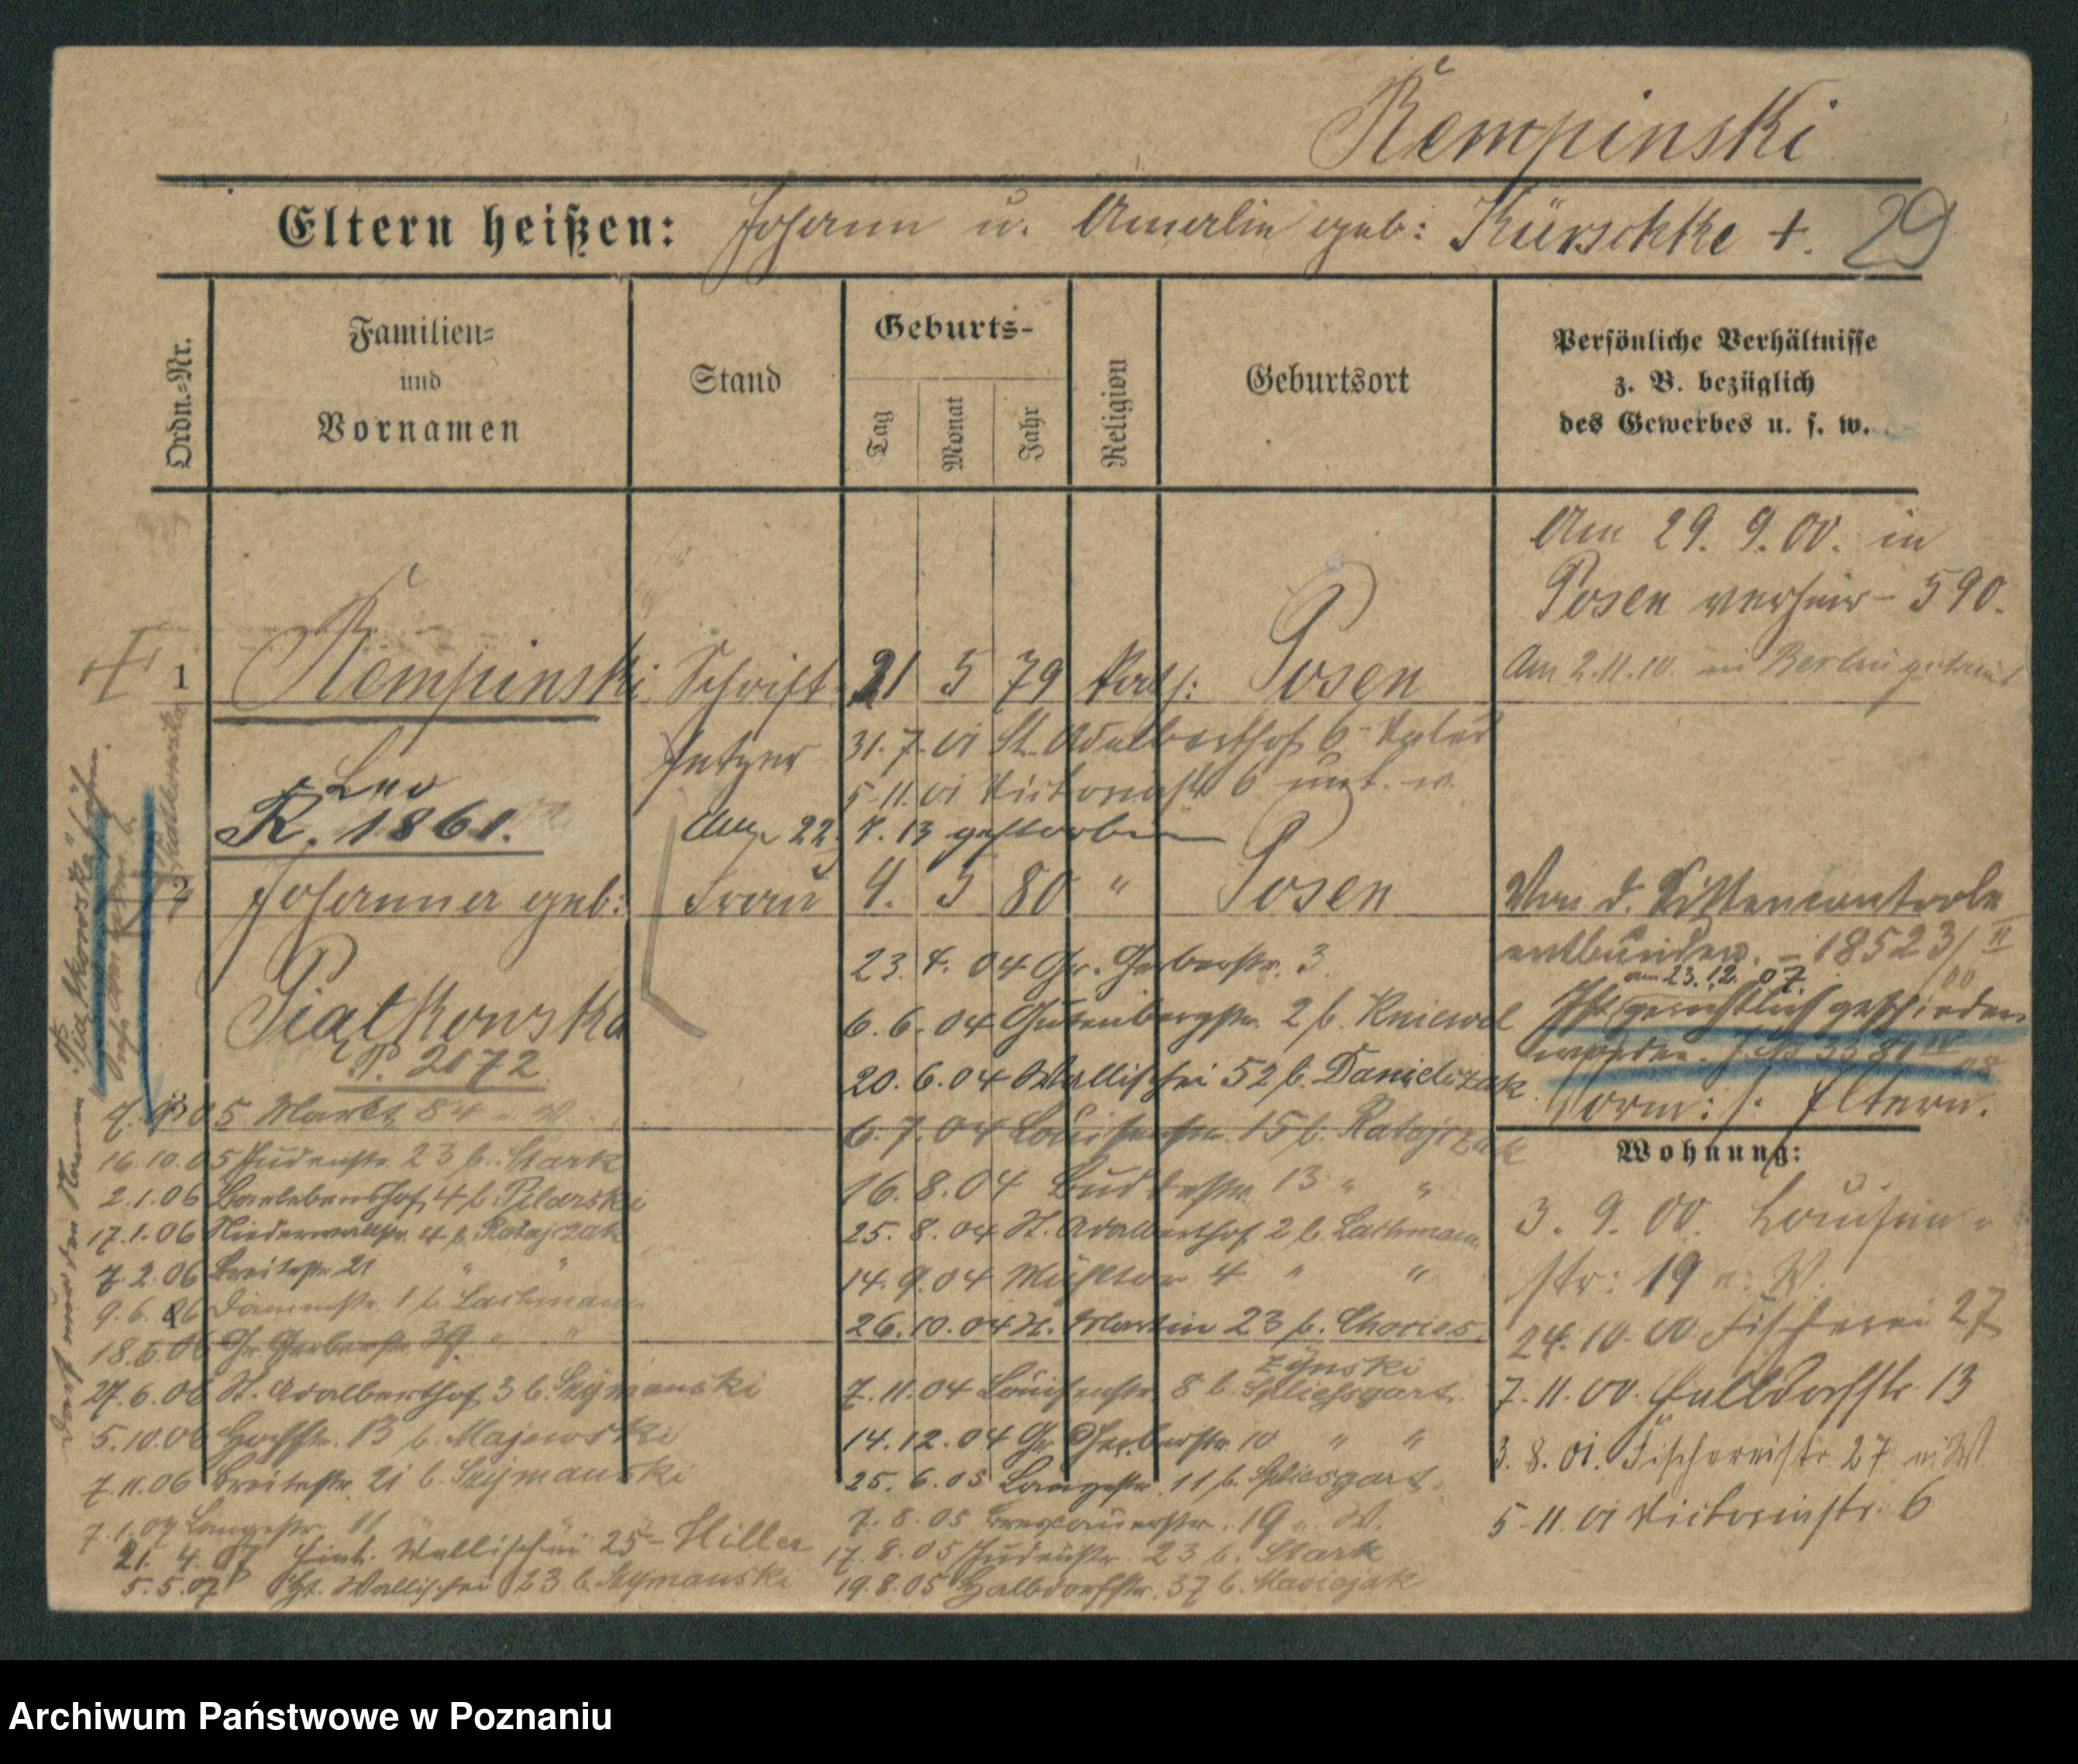 Kempinski
Eltern heißen: Johann u. Amalie geb: Kürschke +.
29
Ordn.-Nr.
Familien-
und
Vornamen
Stand
Geburts-
Tag
Monat
Jahr
Religion
Geburtsort
Persönliche Verhältnisse
z. B. bezüglich
des Gewerbes u. s. w.
Am 29. 9. 00. in
Posen verheir- 590.
Am 2.11.10. in Berlin getraut
1 Kempinski Schrift- 21 5 79 Kath: Posen
setzer
Leo
K. 1861.
31. 7. 01 St. Adalberthof 6
5-11. 01 Victoriastr 6 unt. w.
22. 7. 13 gestorben
2 Johanna geb: Frau 4. 5 80 " Posen
Piatkowska
P. 2172
Von d. Sittencontrole
entbunden. - 18523/II
00
am 23. 12. 07.
Ist gerichtlich geschieden
worden. 3381 IV
08
Vorm: s. Eltern.
Wohnung:
3. 9. 00. Louisen-
str: 19 a. W.
24. 10. 00 Fischerei 27
7. 11. 00. Halbdorfstr. 13
3. 8. 01. Fischereistr. 27
5-11. 01 Victoriastr. 6
23. 4. 04 Gr. Gerberstr. 3.
6. 6. 04 Gutenbergstr. 2 b. Kniewel
20. 6. 04 Wallischei 52 b. Danielczak
6. 7. 04 Louisenstr. 15 b. Ratajczak
16. 8. 04 Buddestr. 13 " "
25. 8. 04 St. Adalberthof 2 b. Lachmann
14. 9. 04 Mühltor 4 " "
26. 10. 04 St. Martin 23 b. Chories
zynski
7. 11. 04 Louisenstr. 8 b. Spliessgart.
14. 12. 04 Gr. Gerberstr. 10 " "
25. 6. 05 Langestr. 11 b. Spliesgart.
7. 8. 05 Breslauerstr. 19 " W.
17. 8. 05 Judenstr. 23 b. Stark
19. 8. 05 Halbdorfstr. 37 b. Maciejak
05 Markt 84 " W.
16. 10. 05 Judenstr. 23 b. Stark
2. 1. 06 Barlebenshof 4 b. Pilarski
17. 1. 06 Niederwallstr. 4 b. Ratajczak
7. 2. 06 Breitestr. 21 " "
9. 6. 06 Dammstr. 1 b. Lachmann
18. 6. 06 Gr. Gerberstr. 39. " "
27. 6. 06 St. Adalberthof 3 b. Szymanski
5. 10. 06 Hochstr. 13 b. Majewski
7. 11. 06 Breitestr. 21 b. Szymanski
7. 1. 07 Langestr. 11 " "
21. 4. 07 Hint. Wallischei 25- Hiller
5. 5. 07 Ht. Wallischei 23 b. Szymanski
Darf nur den Namen "Piatkowska" führen.
Piatkowska
Archiwum Państwowe w Poznaniu